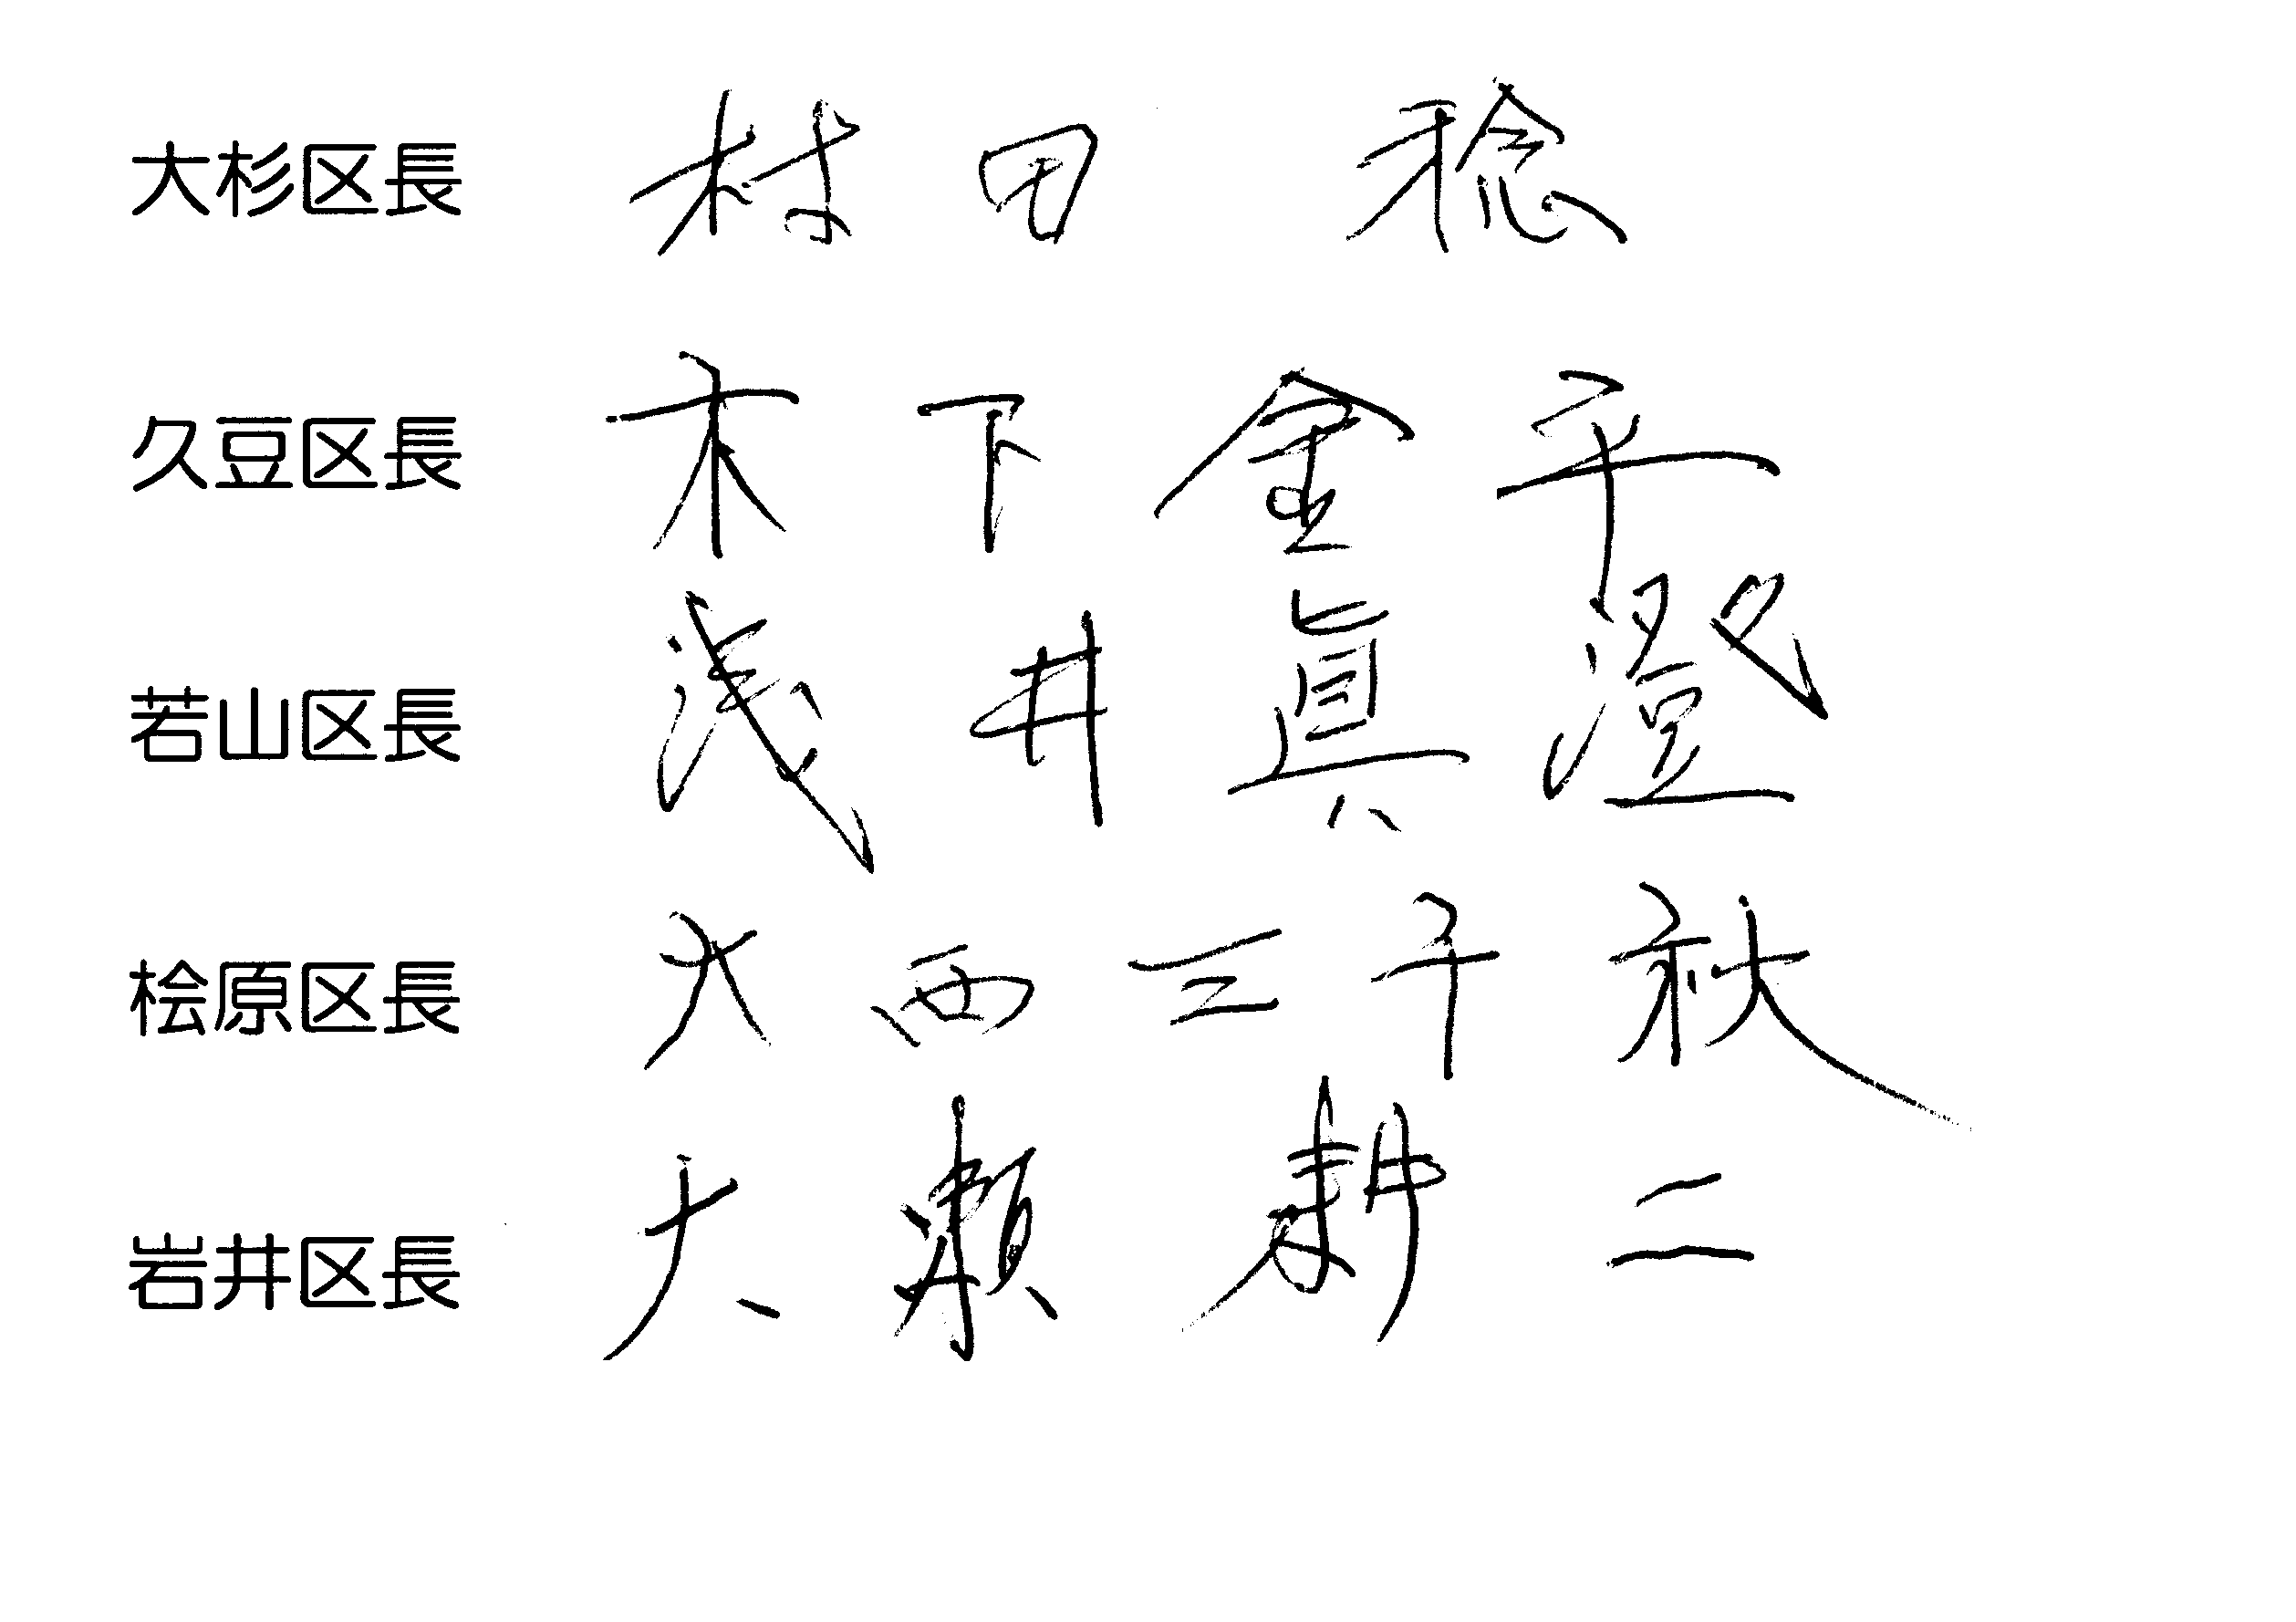 大杉区長 村田 稔
久豆区長 木下金平
若山区長 浅井眞澄
桧原区長 大西三千秋
岩井区長 大瀬耕二